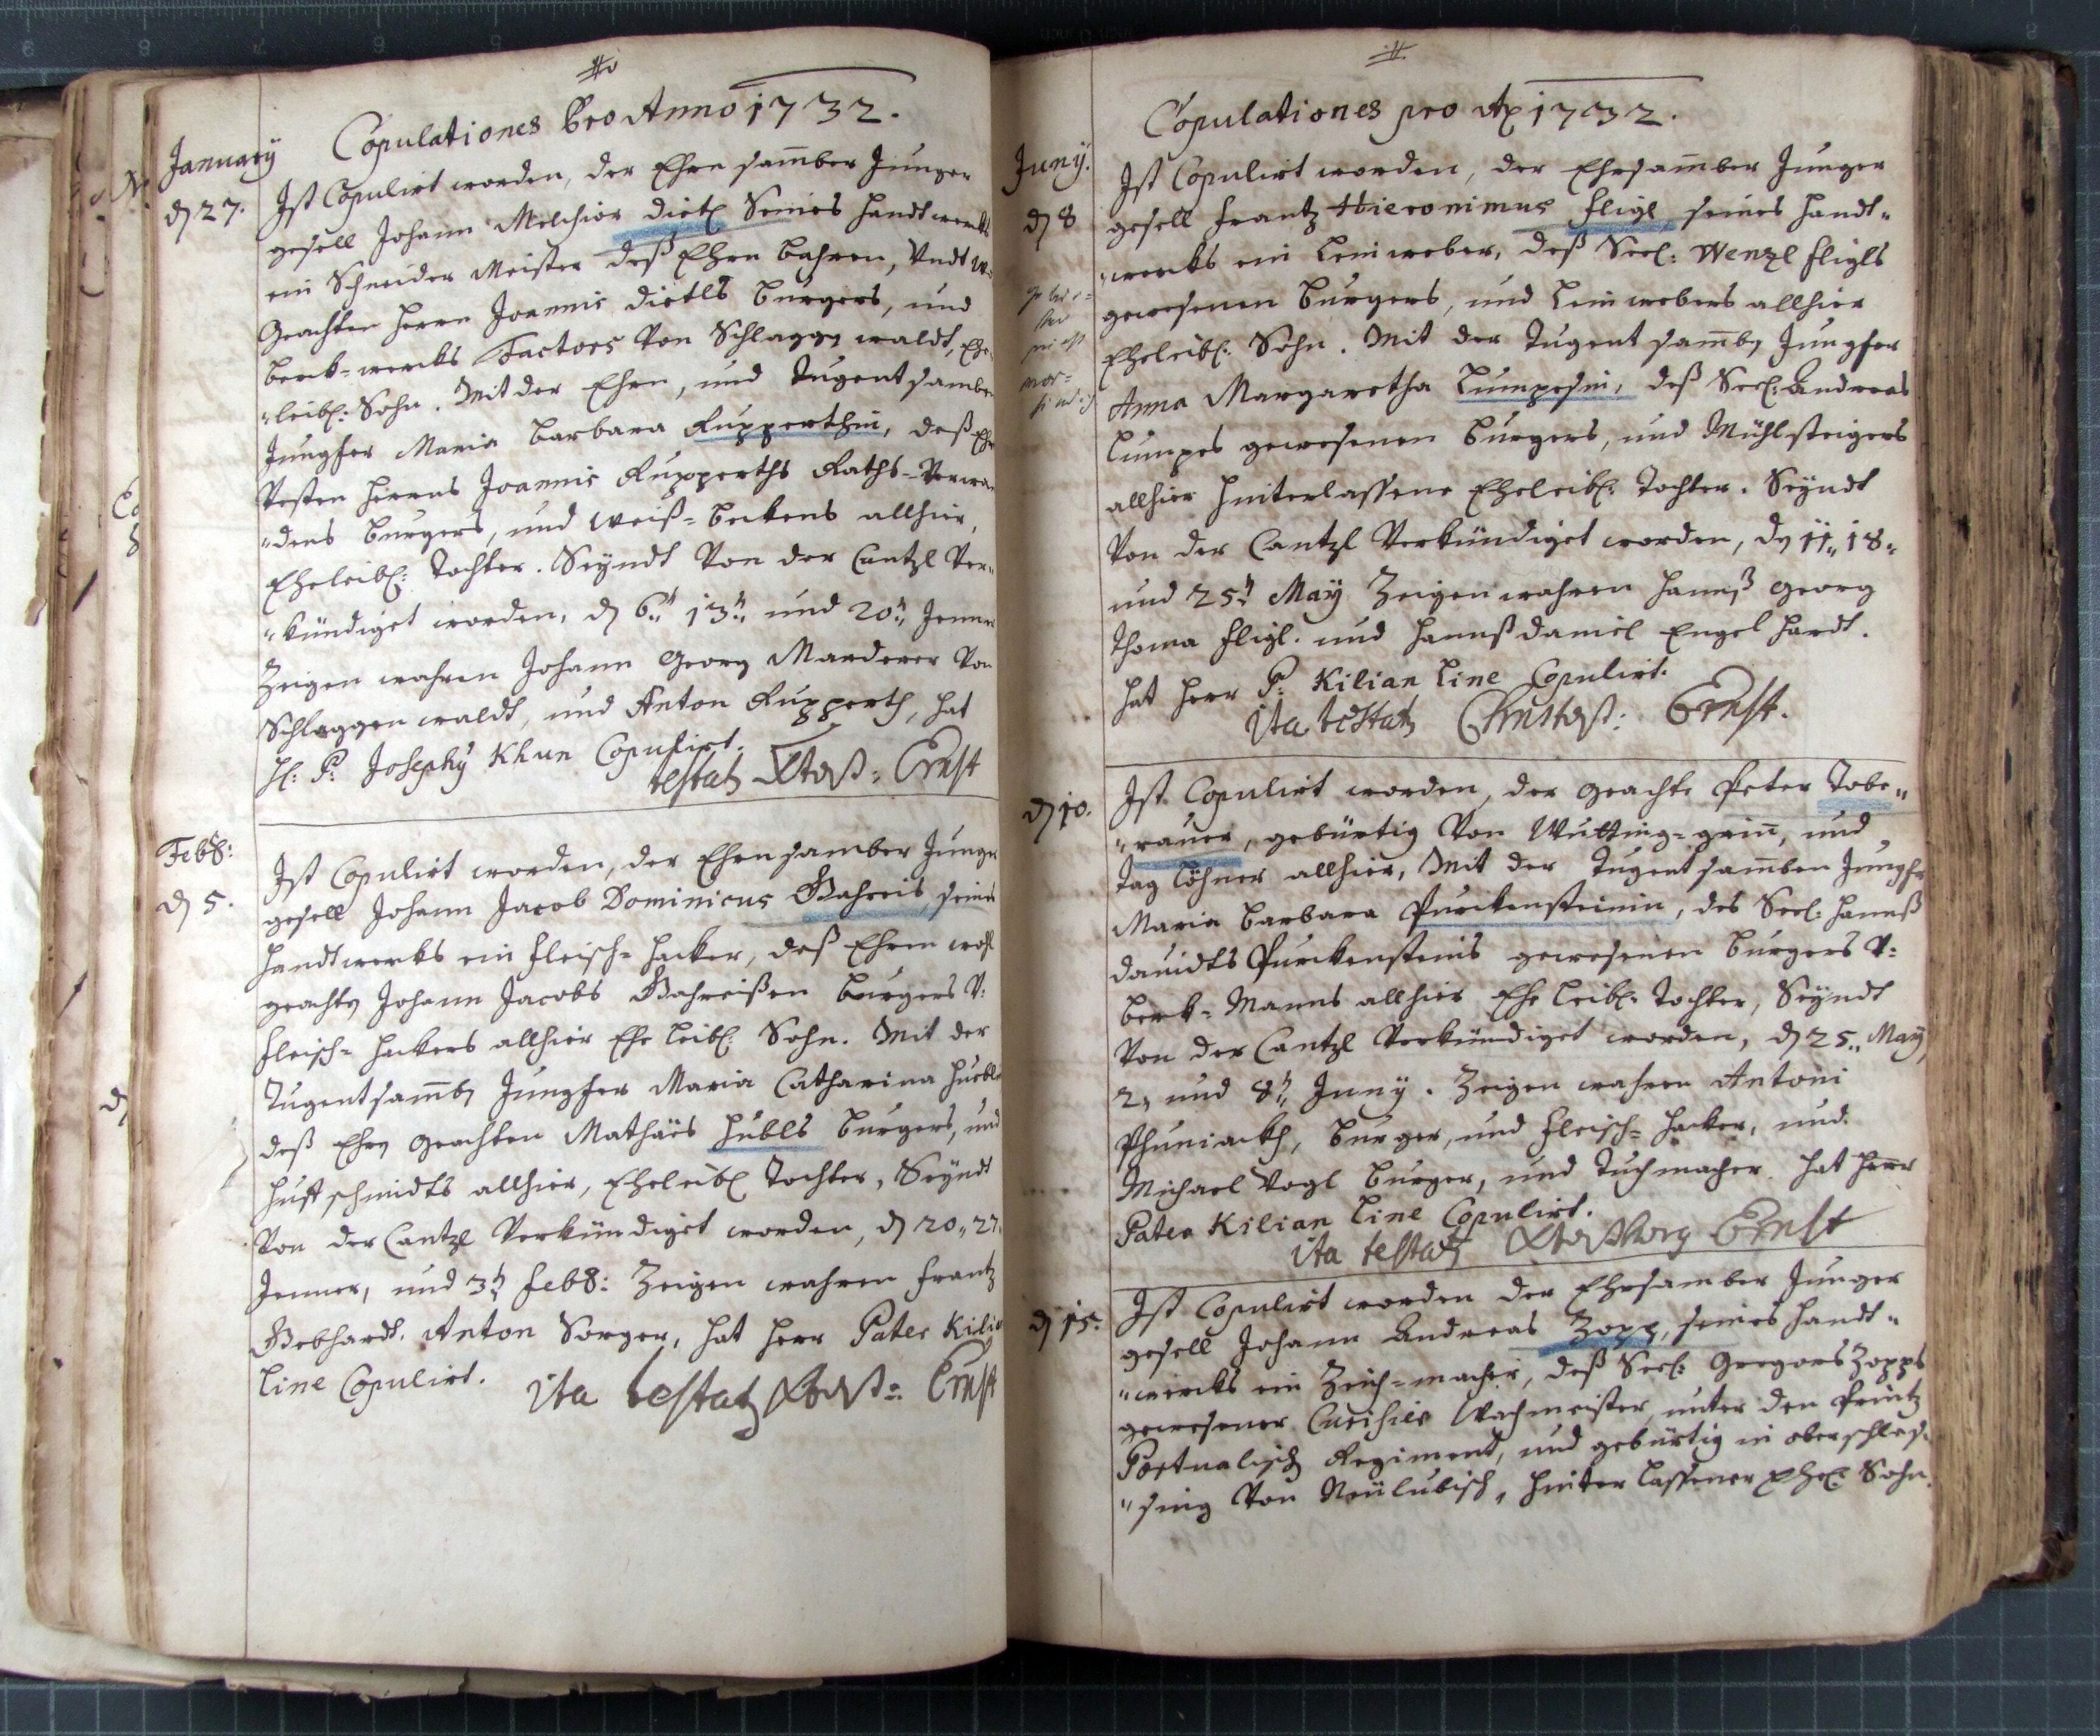 Copulationes Pro Anno 1732.
January
d 27.
Ist Copulirt worden, der Ehrn samber Junge-
gesell Johann Melchior Dietl Seines Handtwercks
ein Schneider Meister deß Ehrn bahren, Undt
Geachten Herrn Joannis Dietls Burgers, und
Berk-wercks Factors Von Schlaggen waldt, Ehe-
"leibl: Sohn. Mit der Ehrn, und Tugent samben
Jungfer Maria Barbara Rupperthin, deß
Vesten Herrns Joannis Rupperths Raths-Verwan
"dens Burgers, und Weiß-beckens allhier,
Eheleibl: Tochter. Seyndt Von der Cantzl Ver-
"kündiget worden, d 6t 13t und 20t Jenner
Zeigen wahren Johann Georg Manderer Von
Schlaggen waldt, und Anton Rupperth, hat
H: P: Josephy Khun Copulirt.
testat Ernst
Feb8:
d 5.
Ist Copulirt worden, der Ehrn samber Junge
gesell Johann Jacob Dominicus Bahreis, seines
Handtwercks ein Fleisch-hacker, deß Ehrn wohl
geachten Johann Jacobs Bahreißen Burgers V:
Fleisch-hackers allhier Ehe leibl: Sohn. Mit der
Tugentsamben Jungfer Maria Catharina
deß Ehrn geachten Mathäes Hübls Burgers, und
Huff schmidts allhier, Eheleibl Tochter, Seyndt
Von der Cantzl Verkündiget worden, d 20,, 27,,
Jenner, und 3t Feb8: Zeigen wahren Frantz
Gebhardt. Anton Sorger, hat Herr Pater Kilian
Line Copulirt.
ita testat Ernst
Copulationes pro Ao 1732.
Juny.
d 8
Ist Copulirt worden, der Ehrsamber Junger
gesell Frantz Hieronimus Fligl, seines Handt-
"wercks ein Leinweber, deß Seel: Wenzl Fligls
gewesenen Burgers, und Leinwebers allhier
Eheleibl: Sohn. Mit der Tugent samben Jungfer
Anna Margaretha Lumpesin, deß Seel: Andreas
Lumpes gewesenen Burgers, und Mühlsteigers
allhier Hinterlassene Eheleibl: Tochter. Seyndt
Von der Cantzl Verkündiget worden, d 11,, 18,,
und 25t May Zeigen wahren Hannß Georg
Thoma Fligl. und Hannß Daniel Engel hardt.
hat Herr P: Kilian Line Copulirt.
Ita testat Ernst.
d 10.
Ist Copulirt worden, der geachte Peter Tobe-
"rauer, gebürtig Von Wutting-grün, und
Tag Löhner allhier, Mit der Tugent samben Jungfer
Maria Barbara Purckensteinin, des Seel: Hannß
Davidts Purckensteins gewesenen Burgers V:
Berk-Manns allhier Ehe leibl: Tochter, Seyndt
Von der Cantzl Verkündiget worden, d 25,, May,
2, und 8t Juny. Zeigen wahren Antoni
Burger, und Fleisch-hacker, und
Michael Vogl Burger, und Tuchmacher. hat Herr
Pater Kilian Line Copulirt.
ita testat Ernst
d 15.
Ist Copulirt worden der Ehrsamber Junger
gesell Johann Andreas Zopp, seines Handt-
"wercks ein Zeich-macher, deß Seel: Gregors Zopps
gewesener Wachmeister, unter den Printz
Portualisch Regiment, und gebürtig in oberschles-
"sing Von Neülubisch, hinter lassener Ehel: Sohn.